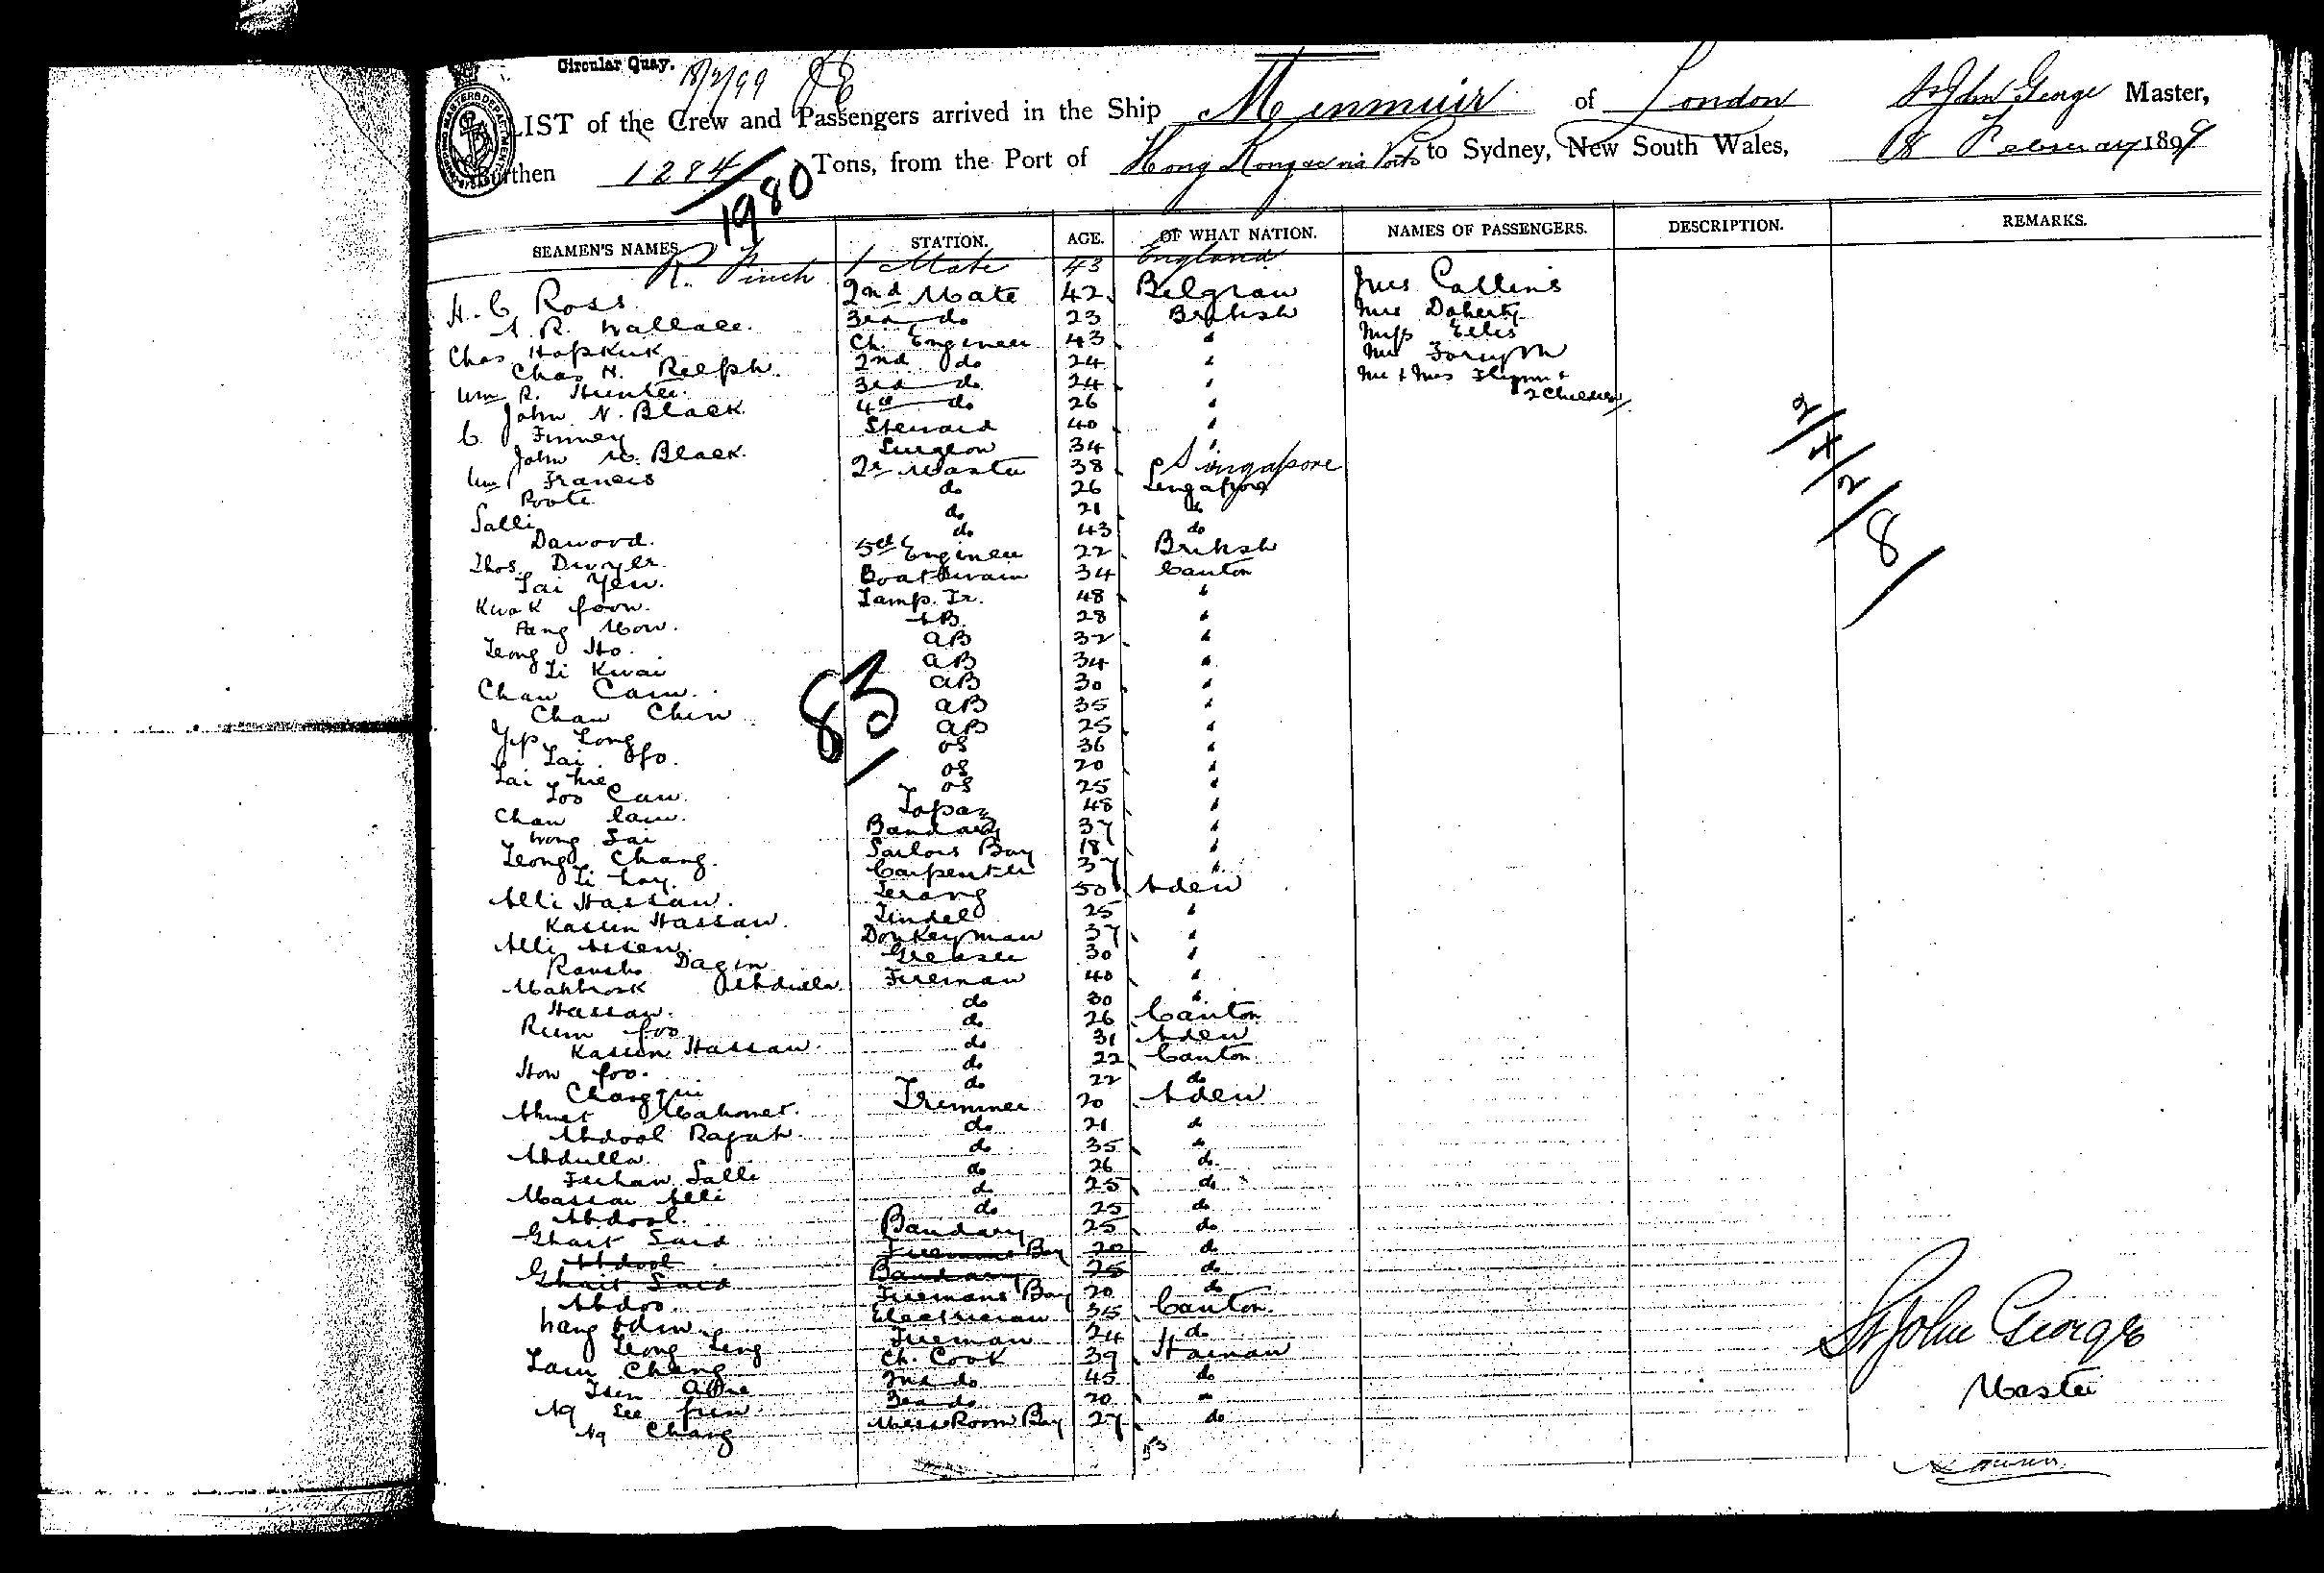 Circular Quay. 18/2/99
LIST of the Crew and Passengers arrived in the Ship Menmuir of London St John George Master,
Burthen 1284/1980 Tons, from the Port of Hong Kong via Ports to Sydney, New South Wales, 18 February 1899
SEAMEN'S NAMES. STATION. AGE. OF WHAT NATION. NAMES OF PASSENGERS. DESCRIPTION. REMARKS.
R. Finch 1 Mate 43 England
H. C Ross 2nd Mate 42 Belgian Mrs Collins
A. R. Wallace 3rd do 23 British Mrs Doherty
Chas Hopkirk Ch. Engineer 43 " Miss Ellis
Chas H. Relph 2nd do 24 " Mr Forsyth
Wm R. Hunter 3rd do 24 " Mr & Mrs Flynn &
John N. Black 4th do 26 " 2 Children
C Finney Steward 40 "
John M. Black Surgeon 34 "
Wm Francis Qr Master 38 Singapore
Poote do 26 Singapore
Salli do 21 do
Dawood do 43 do
Thos. Dwyer 5th Engineer 22 British
Tai Yew Boatswain 34 Canton
Kwok foon Lamp Tr. 48 "
Pang Mow AB 28 "
Leong Ho AB 32 "
Li Kwai AB 34 "
Chan Cam AB 30 "
Chan Chin AB 35 "
Yip Tong AB 25 "
Lai Ofo OS 36 "
Lai OS 20 "
Loo Cam OS 25 "
Chan Cam Topaz 48 "
Wong Sai Bandary 37 "
Leong Chang Sailors Boy 18 "
Li hoy Carpenter 37 "
Alli Hassan Serang 50 Aden
Kassim Hassan Tindel 25 "
Alli Donkeyman 37 "
Dagin Greaser 30 "
Mahbrook Abdulla Fireman 40 "
Hassan do 30 "
foo do 26 Canton
Kassim Hassan do 31 Aden
How foo do 22 Canton
do 22 do
Ahmet Mahomet Trimmer 20 Aden
Abdool Rajah do 21 do
Abdulla do 35 do
Salli do 26 do
Alli do 25 do
Abdool do 25 do
Ghait Said Bandary 25 do
Abdool Firemans Boy 20 do
Ghait Said Bandary 25 do
Abdoo Firemans Boy 20 do
Electrician 35 Canton
Leong Fireman 24 do
Lam Chang Ch. Cook 39 Hainan
2nd do 45 do
Ng See 3rd do 20 "
Ng Chang Mess Room Boy 27 do
83
2/4/2/8
53
St John George
Master